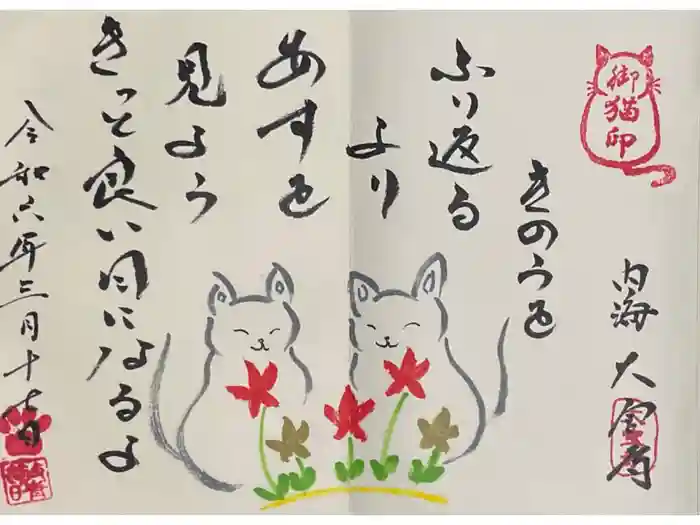 御猫印
内海 大宝寺
きのうを
ふり返る
より
あすを
見よう
きっと良い日になるよ
令和六年三月十七日